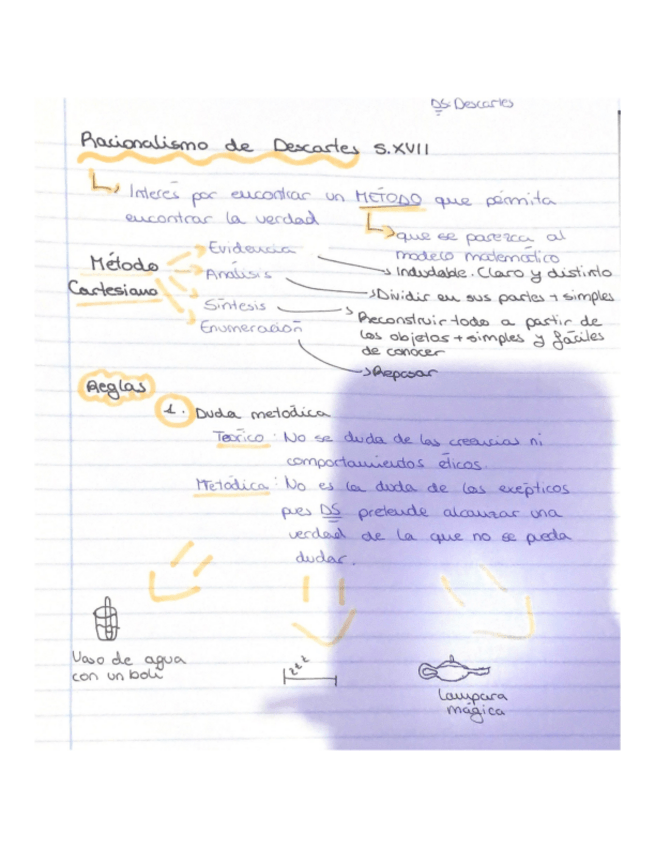 DS: Descartes
Racionalismo de Descartes S.XVII
Interés por encontrar un MÉTODO que permita
encontrar la verdad
que se parezca al
modelo matemático
Método
Cartesiano
Evidencia
Indudable. Claro y distinto
Análisis
Dividir en sus partes + simples
Síntesis
Reconstruir todo a partir de
los objetos + simples y fáciles
de conocer
Enumeración
Repasar
Reglas
1. Duda metódica
Teórico: No se duda de las creencias ni
comportamientos éticos.
Metódica: No es la duda de los exépticos
pues DS pretende alcanzar una
verdad de la que no se pueda
dudar.
Vaso de agua
con un boli
zzz
Lampara
mágica